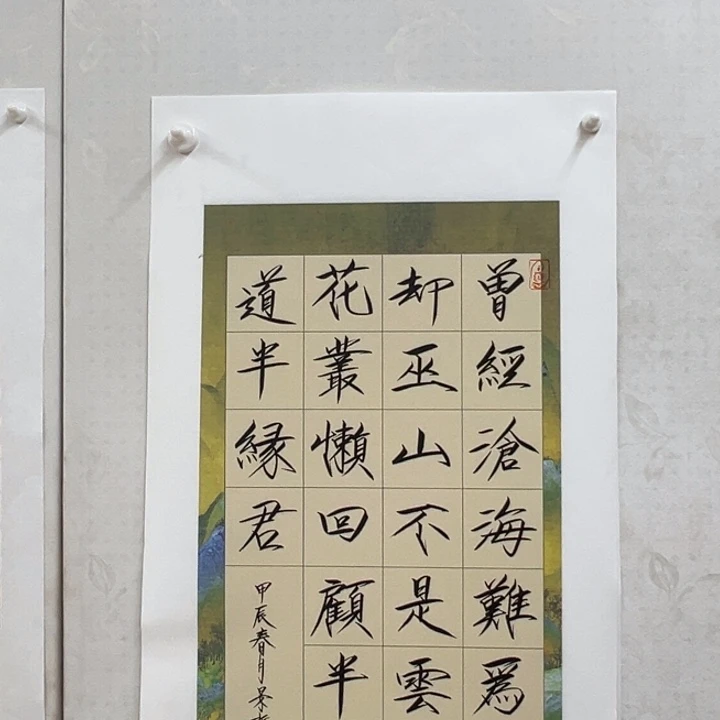 曾經滄海難為
却巫山不是雲
花叢懶回顧半
道半緣君
甲辰春月